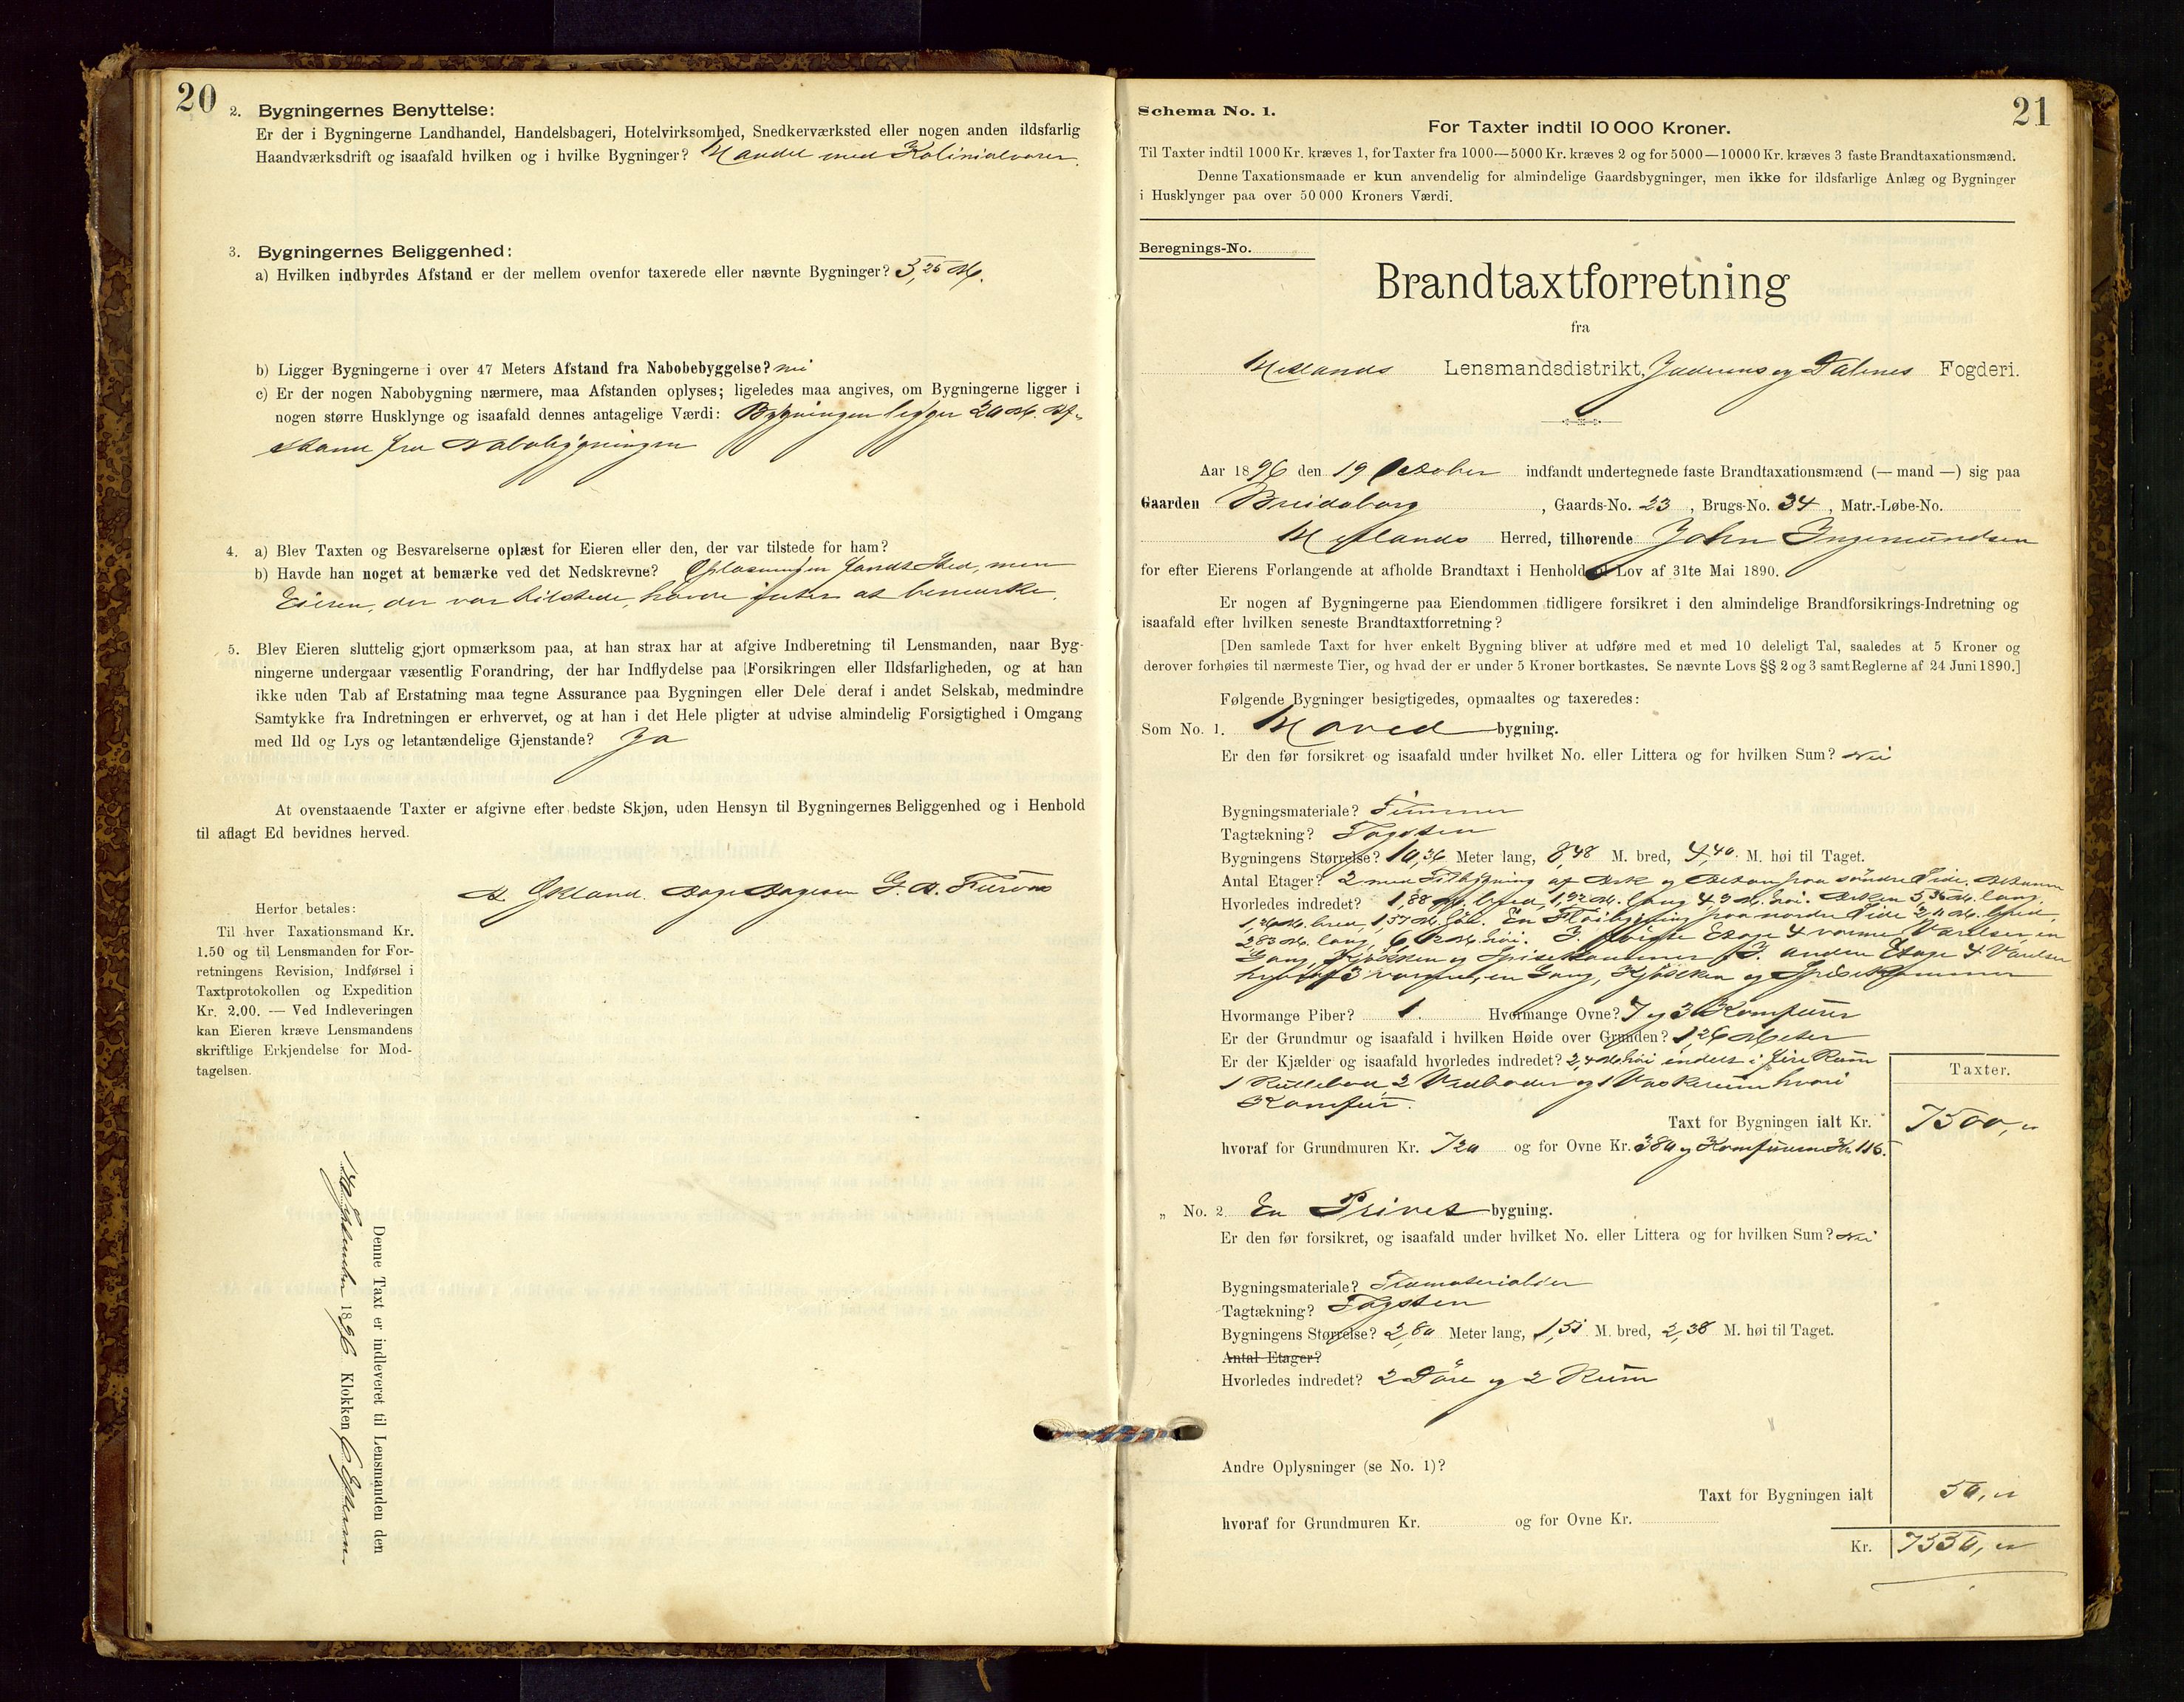 20
2. Bygningernes Benyttelse:
Er der i Bygningerne Landhandel, Handelsbageri, Hotelvirksomhed, Snedkerværksted eller nogen anden ildsfarlig
Haandværksdrift og isaafald hvilken og i hvilke Bygninger? Handel med Kolinialvarer.
3. Bygningernes Beliggenhed:
a) Hvilken indbyrdes Afstand er der mellem ovenfor taxerede eller nævnte Bygninger? 5,25 M.
b) Ligger Bygningerne i over 47 Meters Afstand fra Nabobebyggelse? nei
c) Er der nogen Nabobygning nærmere, maa Afstanden oplyses; ligeledes maa angives, om Bygningerne ligger i
nogen større Husklynge og isaafald dennes antagelige Værdi: Bygningen ligger 20 M. Af-
stand fra Nabobygningen
4. a) Blev Taxten og Besvarelserne oplæst for Eieren eller den, der var tilstede for ham?
b) Havde han noget at bemærke ved det Nedskrevne? Oplæsningen fandt Sted, men
Eieren, der var tilstede, havde intet at bemærke.
5. Blev Eieren sluttelig gjort opmærksom paa, at han strax har at afgive Indberetning til Lensmanden, naar Byg-
ningerne undergaar væsentlig Forandring, der har Indflydelse paa Forsikringen eller Ildsfarligheden, og at han
ikke uden Tab af Erstatning maa tegne Assurance paa Bygningen eller Dele deraf i andet Selskab, medmindre
Samtykke fra Indretningen er erhvervet, og at han i det Hele pligter at udvise almindelig Forsigtighed i Omgang
med Ild og Lys og letantændelige Gjenstande? Ja
At ovenstaaende Taxter er afgivne efter bedste Skjøn, uden Hensyn til Bygningernes Beliggenhed og i Henhold
til aflagt Ed bevidnes herved.
Økland. Aage Aagesen G. A.
Herfor betales:
Til hver Taxationsmand Kr.
1.50 og til Lensmanden for For-
retningens Revision, Indførsel i
Taxtprotokollen og Expedition
Kr. 2.00. — Ved Indleveringen
kan Eieren kræve Lensmandens
skriftlige Erkjendelse for Mod-
tagelsen.
Denne Taxt er indleveret til Lensmanden den
1896 Klokken 6
21
Schema No. 1.
For Taxter indtil 10 000 Kroner.
Til Taxter indtil 1000 Kr. kræves 1, for Taxter fra 1000—5000 Kr. kræves 2 og for 5000—10000 Kr. kræves 3 faste Brandtaxationsmænd.
Denne Taxationsmaade er kun anvendelig for almindelige Gaardsbygninger, men ikke for ildsfarlige Anlæg og Bygninger
i Husklynger paa over 50 000 Kroners Værdi.
Beregnings-No.
Brandtaxtforretning
fra
Hetlands Lensmandsdistrikt, Jæderens og Dalenes Fogderi.
Aar 1896 den 19 October indfandt undertegnede faste Brandtaxationsmænd (— mand —) sig paa
Gaarden Breidaborg, Gaards-No. 23, Brugs-No. 34, Matr.-Løbe-No.
Hetlands Herred, tilhørende John Ingemundsen
for efter Eierens Forlangende at afholde Brandtaxt i Henhold til Lov af 31te Mai 1890.
Er nogen af Bygningerne paa Eiendommen tidligere forsikret i den almindelige Brandforsikrings-Indretning og
isaafald efter hvilken seneste Brandtaxtforretning?
[Den samlede Taxt for hver enkelt Bygning bliver at udføre med et med 10 deleligt Tal, saaledes at 5 Kroner og
derover forhøies til nærmeste Tier, og hvad der er under 5 Kroner bortkastes. Se nævnte Lovs §§ 2 og 3 samt Reglerne af 24 Juni 1890.]
Følgende Bygninger besigtigedes, opmaaltes og taxeredes:
Som No. 1. Hoved bygning.
Er den før forsikret og isaafald under hvilket No. eller Littera og for hvilken Sum? Nei
Bygningsmateriale? Tømmer
Tagtækning? Tagsten
Bygningens Størrelse? 10,36 Meter lang, 8,48 M. bred, 4,40 M. høi til Taget.
Antal Etager? 2 med Tilbygning af Ark og Altan paa søndre Side. Altanen
Hvorledes indredet? 1,88 M. bred, 1,92 M. lang 4 M. høi. Arken 5,35 M. lang,
1,26 M. bred, 1,57 M. høi. En Fløibygning paa nordre Side M. bred,
2,83 M. lang, M. høi. I første Etage 4 varme Værelser, en
Gang, Kjøkken og Spisekammer. I anden Etage 4 Værelser
hvoraf 3 varme, en Gang, Kjøkken og Spisekammer
Hvormange Piber? 1. Hvormange Ovne? 7 og 3 Komfurer
Er der Grundmur og isaafald i hvilken Høide over Grunden? 1,26 Meter
Er der Kjælder og isaafald hvorledes indredet? 2,4 M. høi indelt i fire Rum
1 Rullebod, 2 Vedboder og 1 Vaskerum hvori
Komfur.
Taxter.
Taxt for Bygningen ialt Kr. 7500,
hvoraf for Grundmuren Kr. 720 og for Ovne Kr. 380 og Komfurerne Kr. 116.
„ No. 2. En Privet bygning.
Er den før forsikret, og isaafald under hvilket No. eller Littera og for hvilken Sum? Nei
Bygningsmateriale? Træmaterialier
Tagtækning? Tagsten
Bygningens Størrelse? 2,80 Meter lang, 1,55 M. bred, 2,38 M. høi til Taget.
Antal Etager?
Hvorledes indredet? 2 Døre og 2 Rum
Andre Oplysninger (se No. 1)?
Taxt for Bygningen ialt 50,
hvoraf for Grundmuren Kr. og for Ovne Kr.
Kr. 7550,